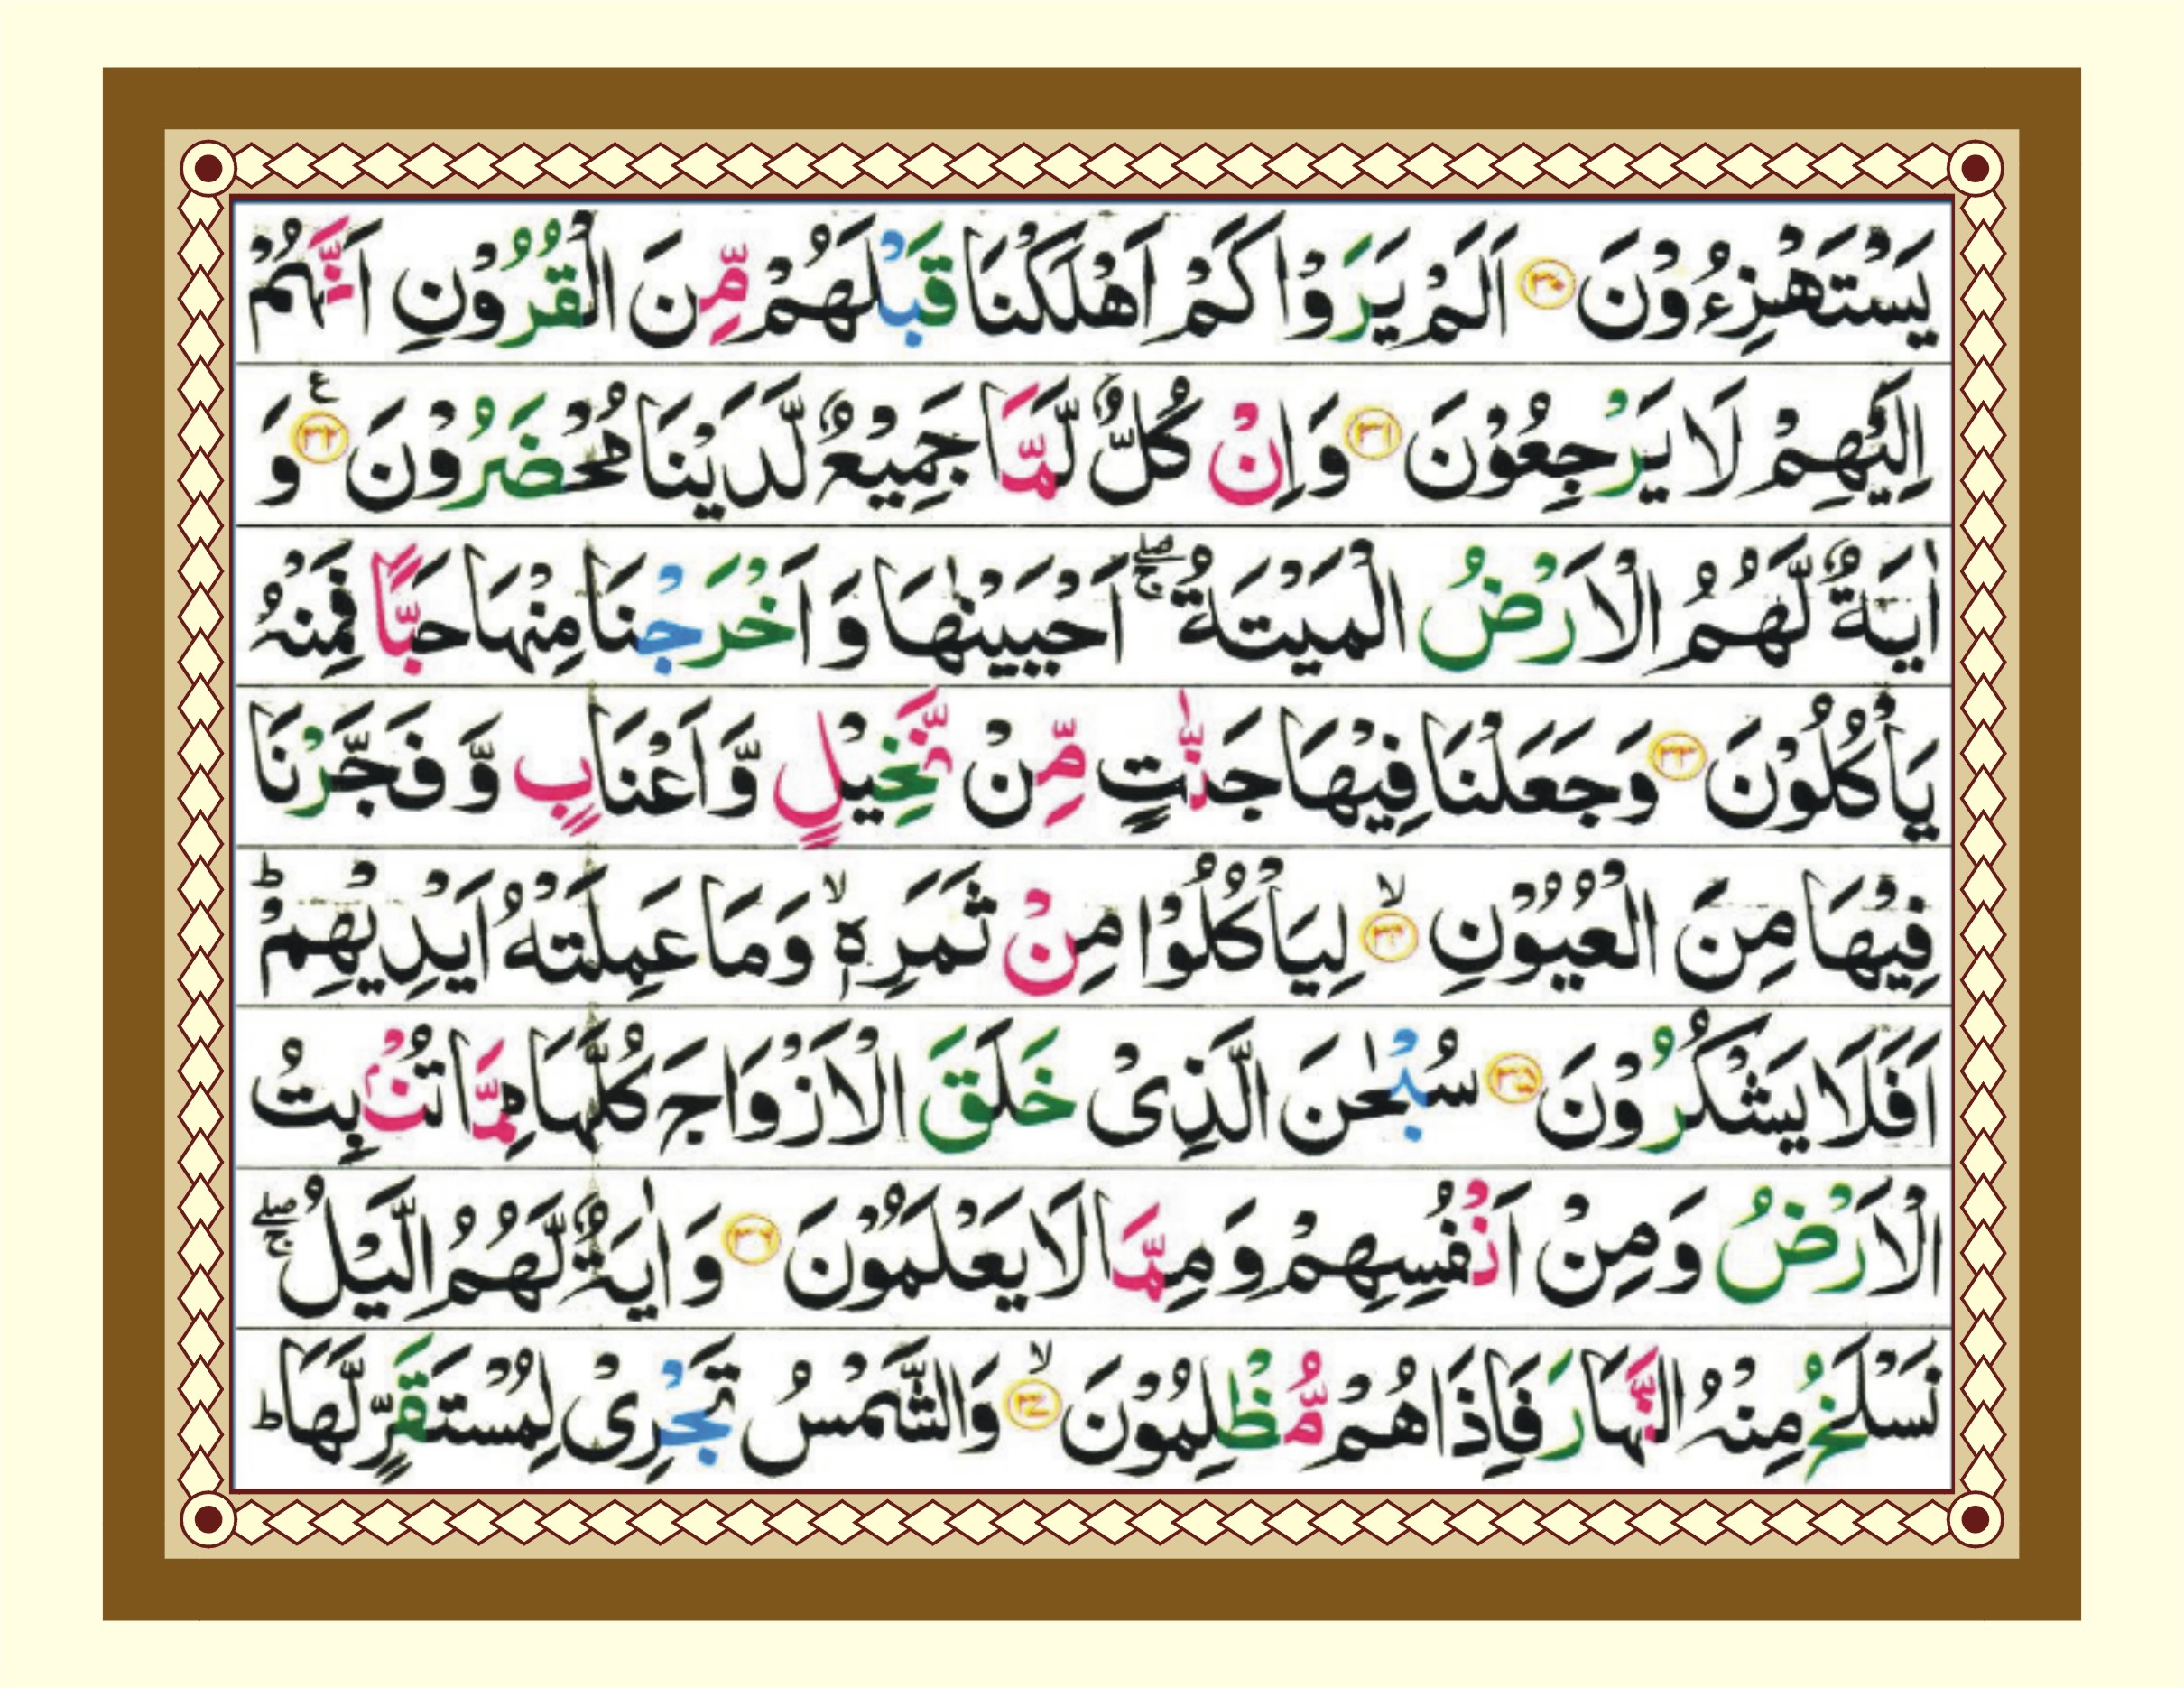 يَسْتَهْزِءُوْنَ ﴿۳۰﴾ اَلَمْ يَرَوْا كَمْ اَهْلَكْنَا قَبْلَهُمْ مِّنَ الْقُرُوْنِ اَنَّهُمْ
اِلَيْهِمْ لَا يَرْجِعُوْنَ ﴿۳۱﴾ وَاِنْ كُلٌّ لَّمَّا جَمِيْعٌ لَّدَيْنَا مُحْضَرُوْنَ ﴿۳۲﴾ۧ وَ
اٰيَةٌ لَّهُمُ الْاَرْضُ الْمَيْتَةُ ۖۚ اَحْيَيْنٰهَا وَ اَخْرَجْنَا مِنْهَا حَبًّا فَمِنْهُ
يَاْكُلُوْنَ ﴿۳۳﴾ وَجَعَلْنَا فِيْهَا جَنّٰتٍ مِّنْ نَّخِيْلٍ وَّ اَعْنَابٍ وَّ فَجَّرْنَا
فِيْهَا مِنَ الْعُيُوْنِ ﴿۳۴﴾ۙ لِيَاْكُلُوْا مِنْ ثَمَرِهٖ ۙ وَمَا عَمِلَتْهُ اَيْدِيْهِمْ ؕ
اَفَلَا يَشْكُرُوْنَ ﴿۳۵﴾ سُبْحٰنَ الَّذِىْ خَلَقَ الْاَزْوَاجَ كُلَّهَا مِمَّا تُنْۢبِتُ
الْاَرْضُ وَمِنْ اَنْفُسِهِمْ وَمِمَّا لَا يَعْلَمُوْنَ ﴿۳۶﴾ وَ اٰيَةٌ لَّهُمُ الَّيْلُ ۖۚ
نَسْلَخُ مِنْهُ النَّهَارَ فَاِذَا هُمْ مُّظْلِمُوْنَ ﴿۳۷﴾ۙ وَالشَّمْسُ تَجْرِىْ لِمُسْتَقَرٍّ لَّهَا ؕ